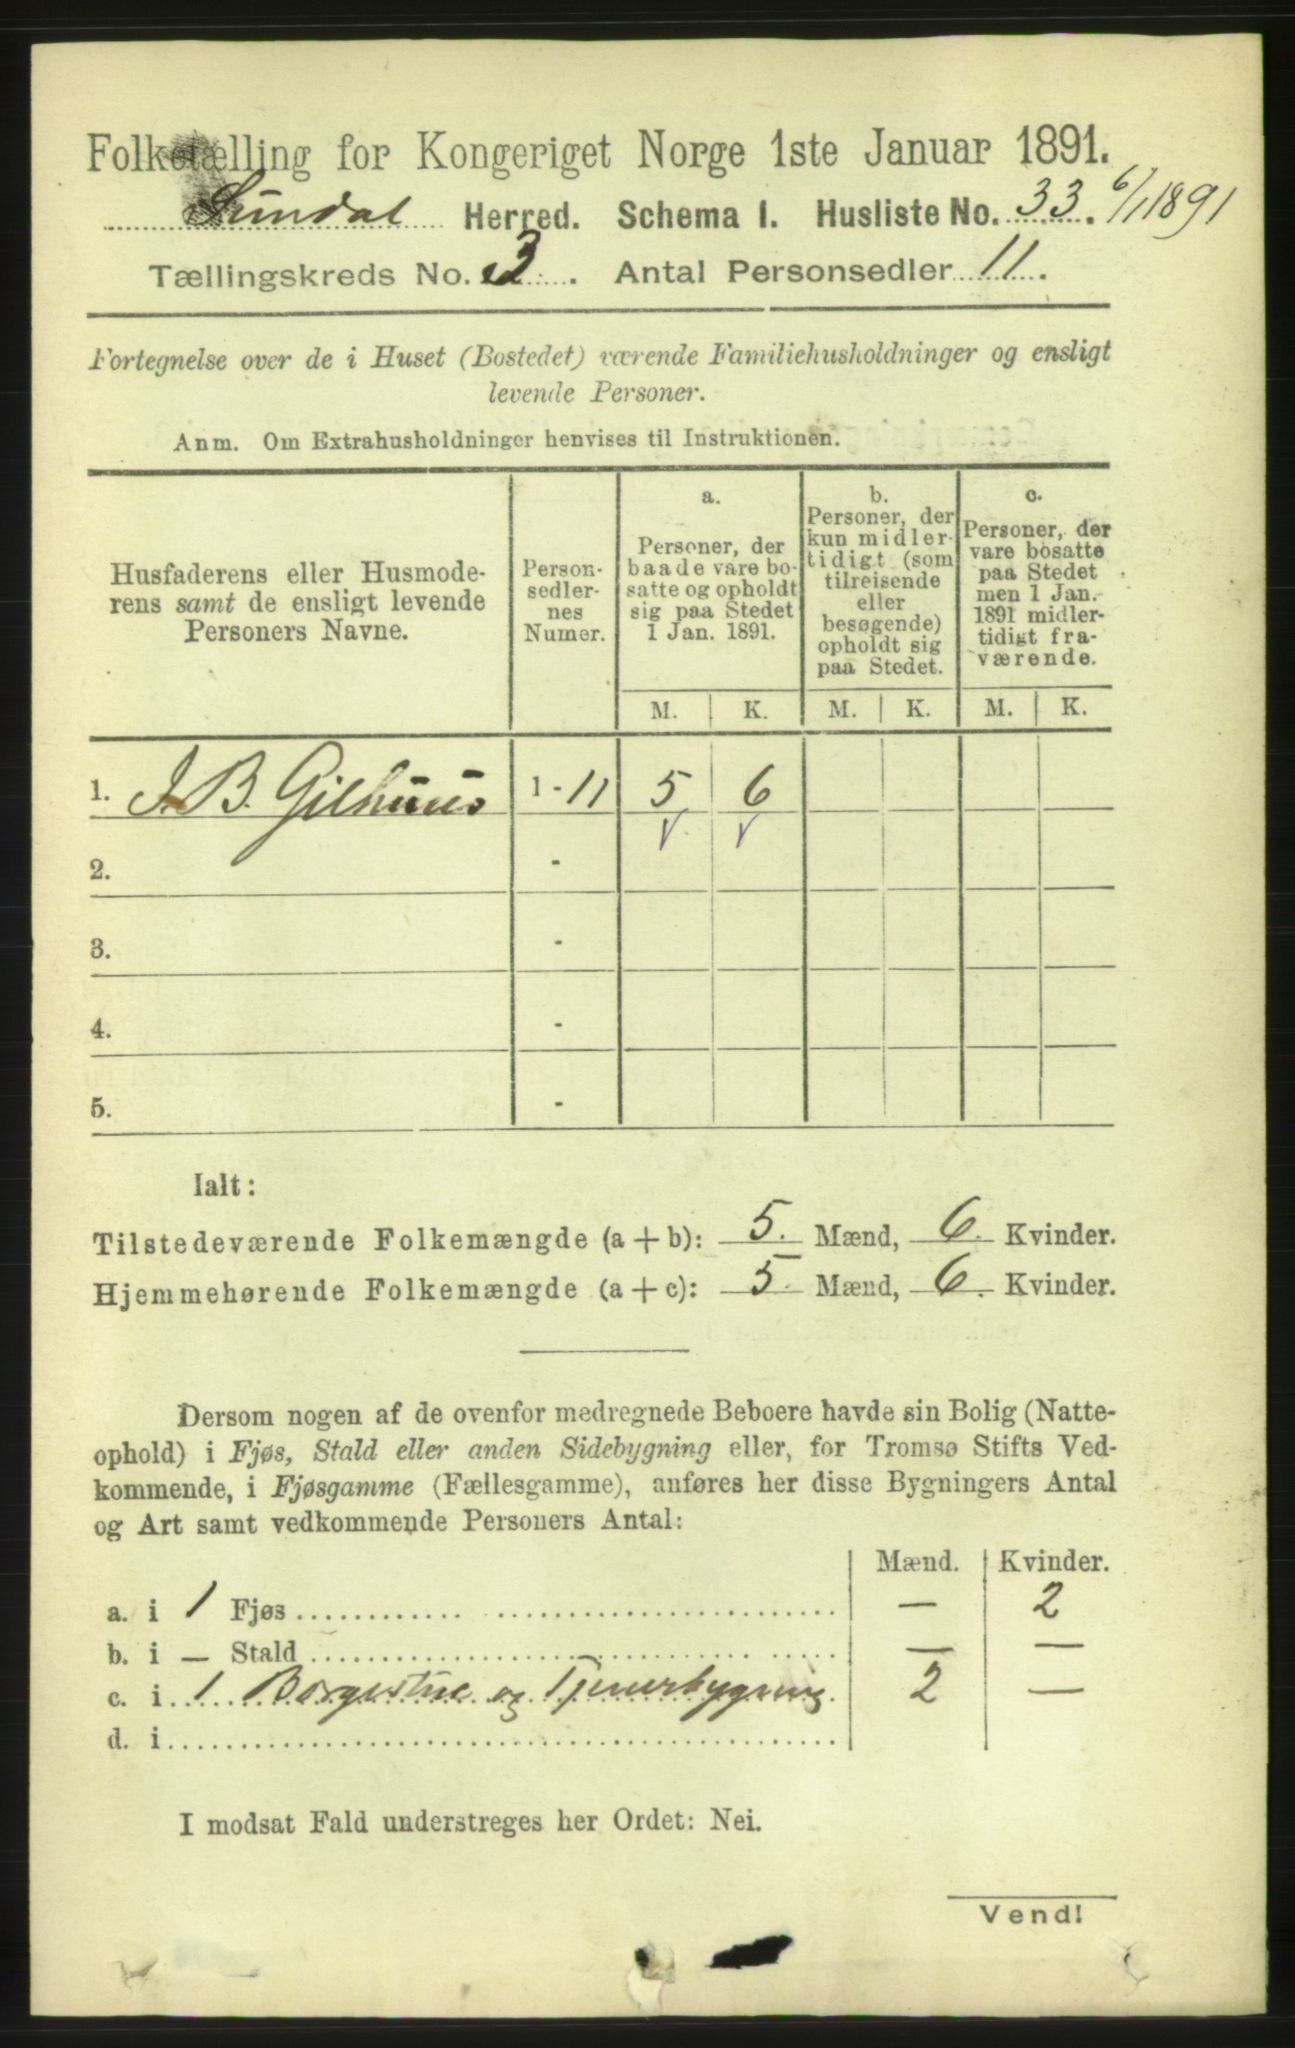 Folketælling for Kongeriget Norge 1ste Januar 1891.
Sundal Herred. Schema I. Husliste No. 33. 6/1 1891
Tællingskreds No. 3. Antal Personsedler 11.
Fortegnelse over de i Huset (Bostedet) værende Familiehusholdninger og ensligt
levende Personer.
Anm. Om Extrahusholdninger henvises til Instruktionen.
Husfaderens eller Husmode-
rens samt de ensligt levende
Personers Navne.
Person-
sedler-
nes
Numer.
a.
Personer, der
baade vare bo-
satte og opholdt
sig paa Stedet
1 Jan. 1891.
b.
Personer, der
kun midler-
tidigt (som
tilreisende
eller
besøgende)
opholdt sig
paa Stedet.
c.
Personer, der
vare bosatte
paa Stedet
men 1 Jan.
1891 midler-
tidigt fra-
værende.
M. K. M. K. M. K.
1. J. B. Gilhuus 1 - 11 5 6
2. -
3. -
4. -
5. -
Ialt:
Tilstedeværende Folkemængde (a + b): 5. Mænd, 6. Kvinder.
Hjemmehørende Folkemængde (a + c): 5. Mænd, 6. Kvinder.
Dersom nogen af de ovenfor medregnede Beboere havde sin Bolig (Natte-
ophold) i Fjøs, Stald eller anden Sidebygning eller, for Tromsø Stifts Ved-
kommende, i Fjøsgamme (Fællesgamme), anføres her disse Bygningers Antal
og Art samt vedkommende Personers Antal:
Mænd. Kvinder.
a. i 1 Fjøs — 2
b. i — Stald — —
c. i 1 Borgestue og Tjenerbygning 2 —
d. i
I modsat Fald understreges her Ordet: Nei.
Vend!